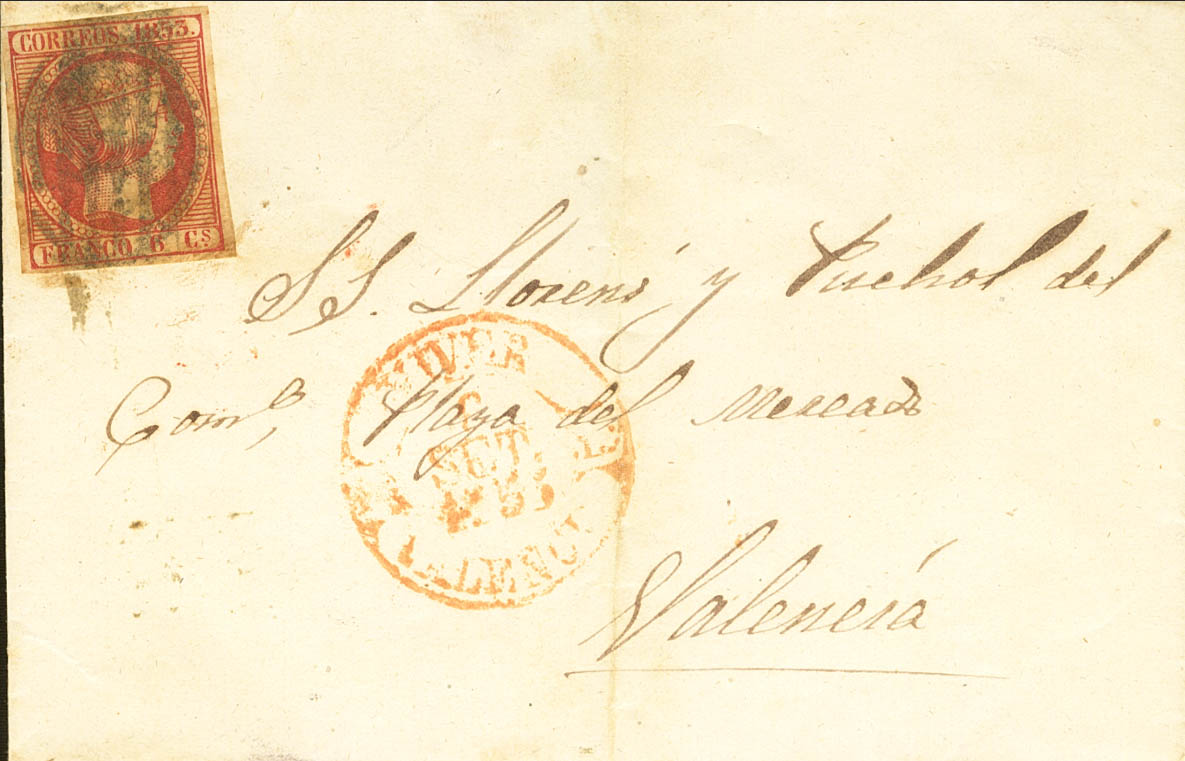 CORREOS. 1853.
FRANCO. 6 Cs
SS. Llorens y Puchol del
Comº, Plaza del Mercado
Valencia
VIVER
SET.
VALENCI